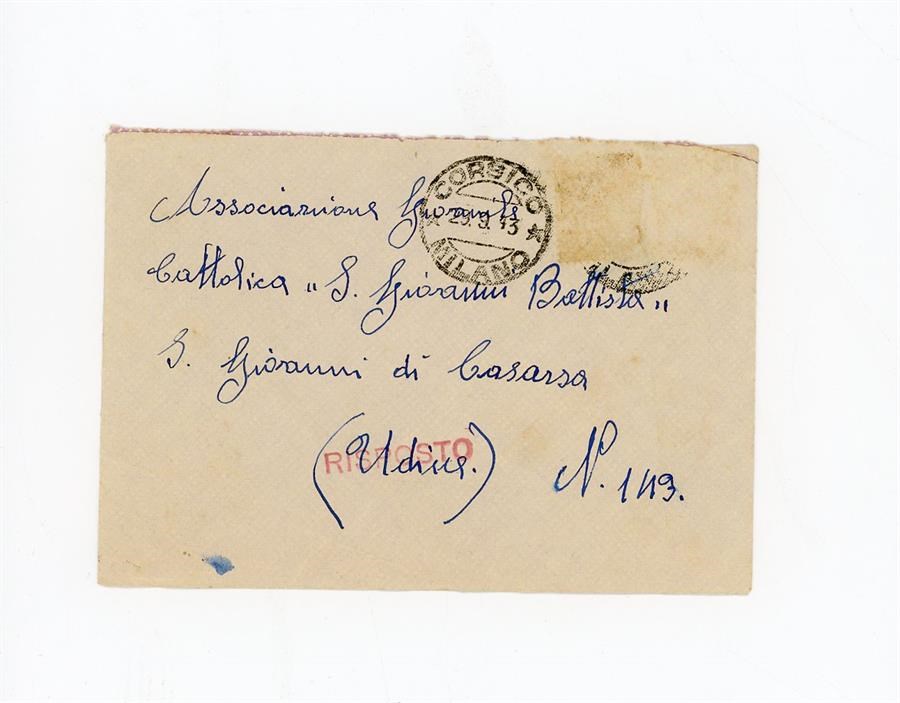 CORSICO
29.9.43
★ ★
MILANO
Associazione Giovanile
Cattolica „S. Giovanni Battista„
S. Giovanni di Casarsa
(Udine.)
RISPOSTO
N. 143.